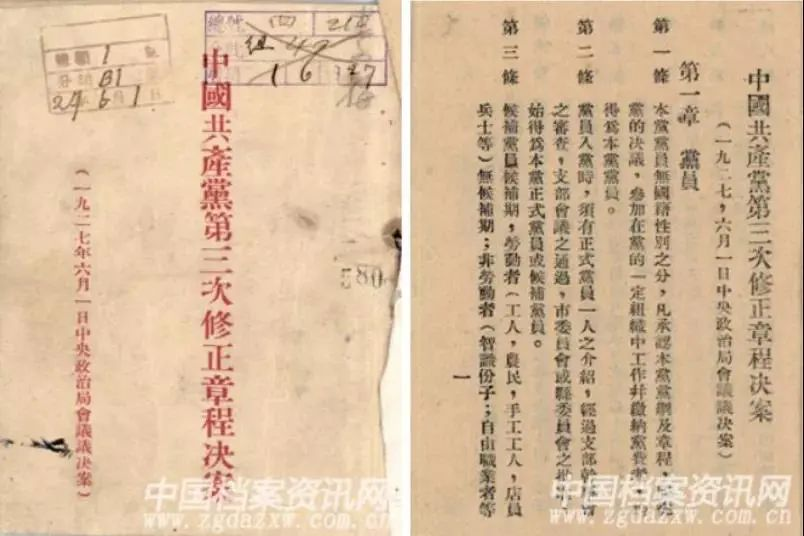 中國共產黨第三次修正章程决案
(一九二七年六月一日中央政治局會議議决案)
580
中国档案资讯网
www.zgdazxw.com.cn
中國共產黨第三次修正章程决案
(一九二七,六月一日中央政治局會議議决案)
第一章 黨員
第一條 本黨黨員無國籍性别之分,凡承認本黨黨綱及章程,
黨的决議,參加在黨的一定組織中工作幷繳納黨費
得爲本黨黨員。
第二條 黨員入黨時,須有正式黨員一人之介紹,經過支部
之審查,支部會議之通過,市委員會或縣委員會之批
始得爲本黨正式黨員或候補黨員。
第三條 候補黨員候補期,勞動者(工人,農民,手工工人,店員
兵士等)無候補期;非勞動者(智識份子;自由職業者等
一
中国档案资讯网
www.zgdazxw.com.cn